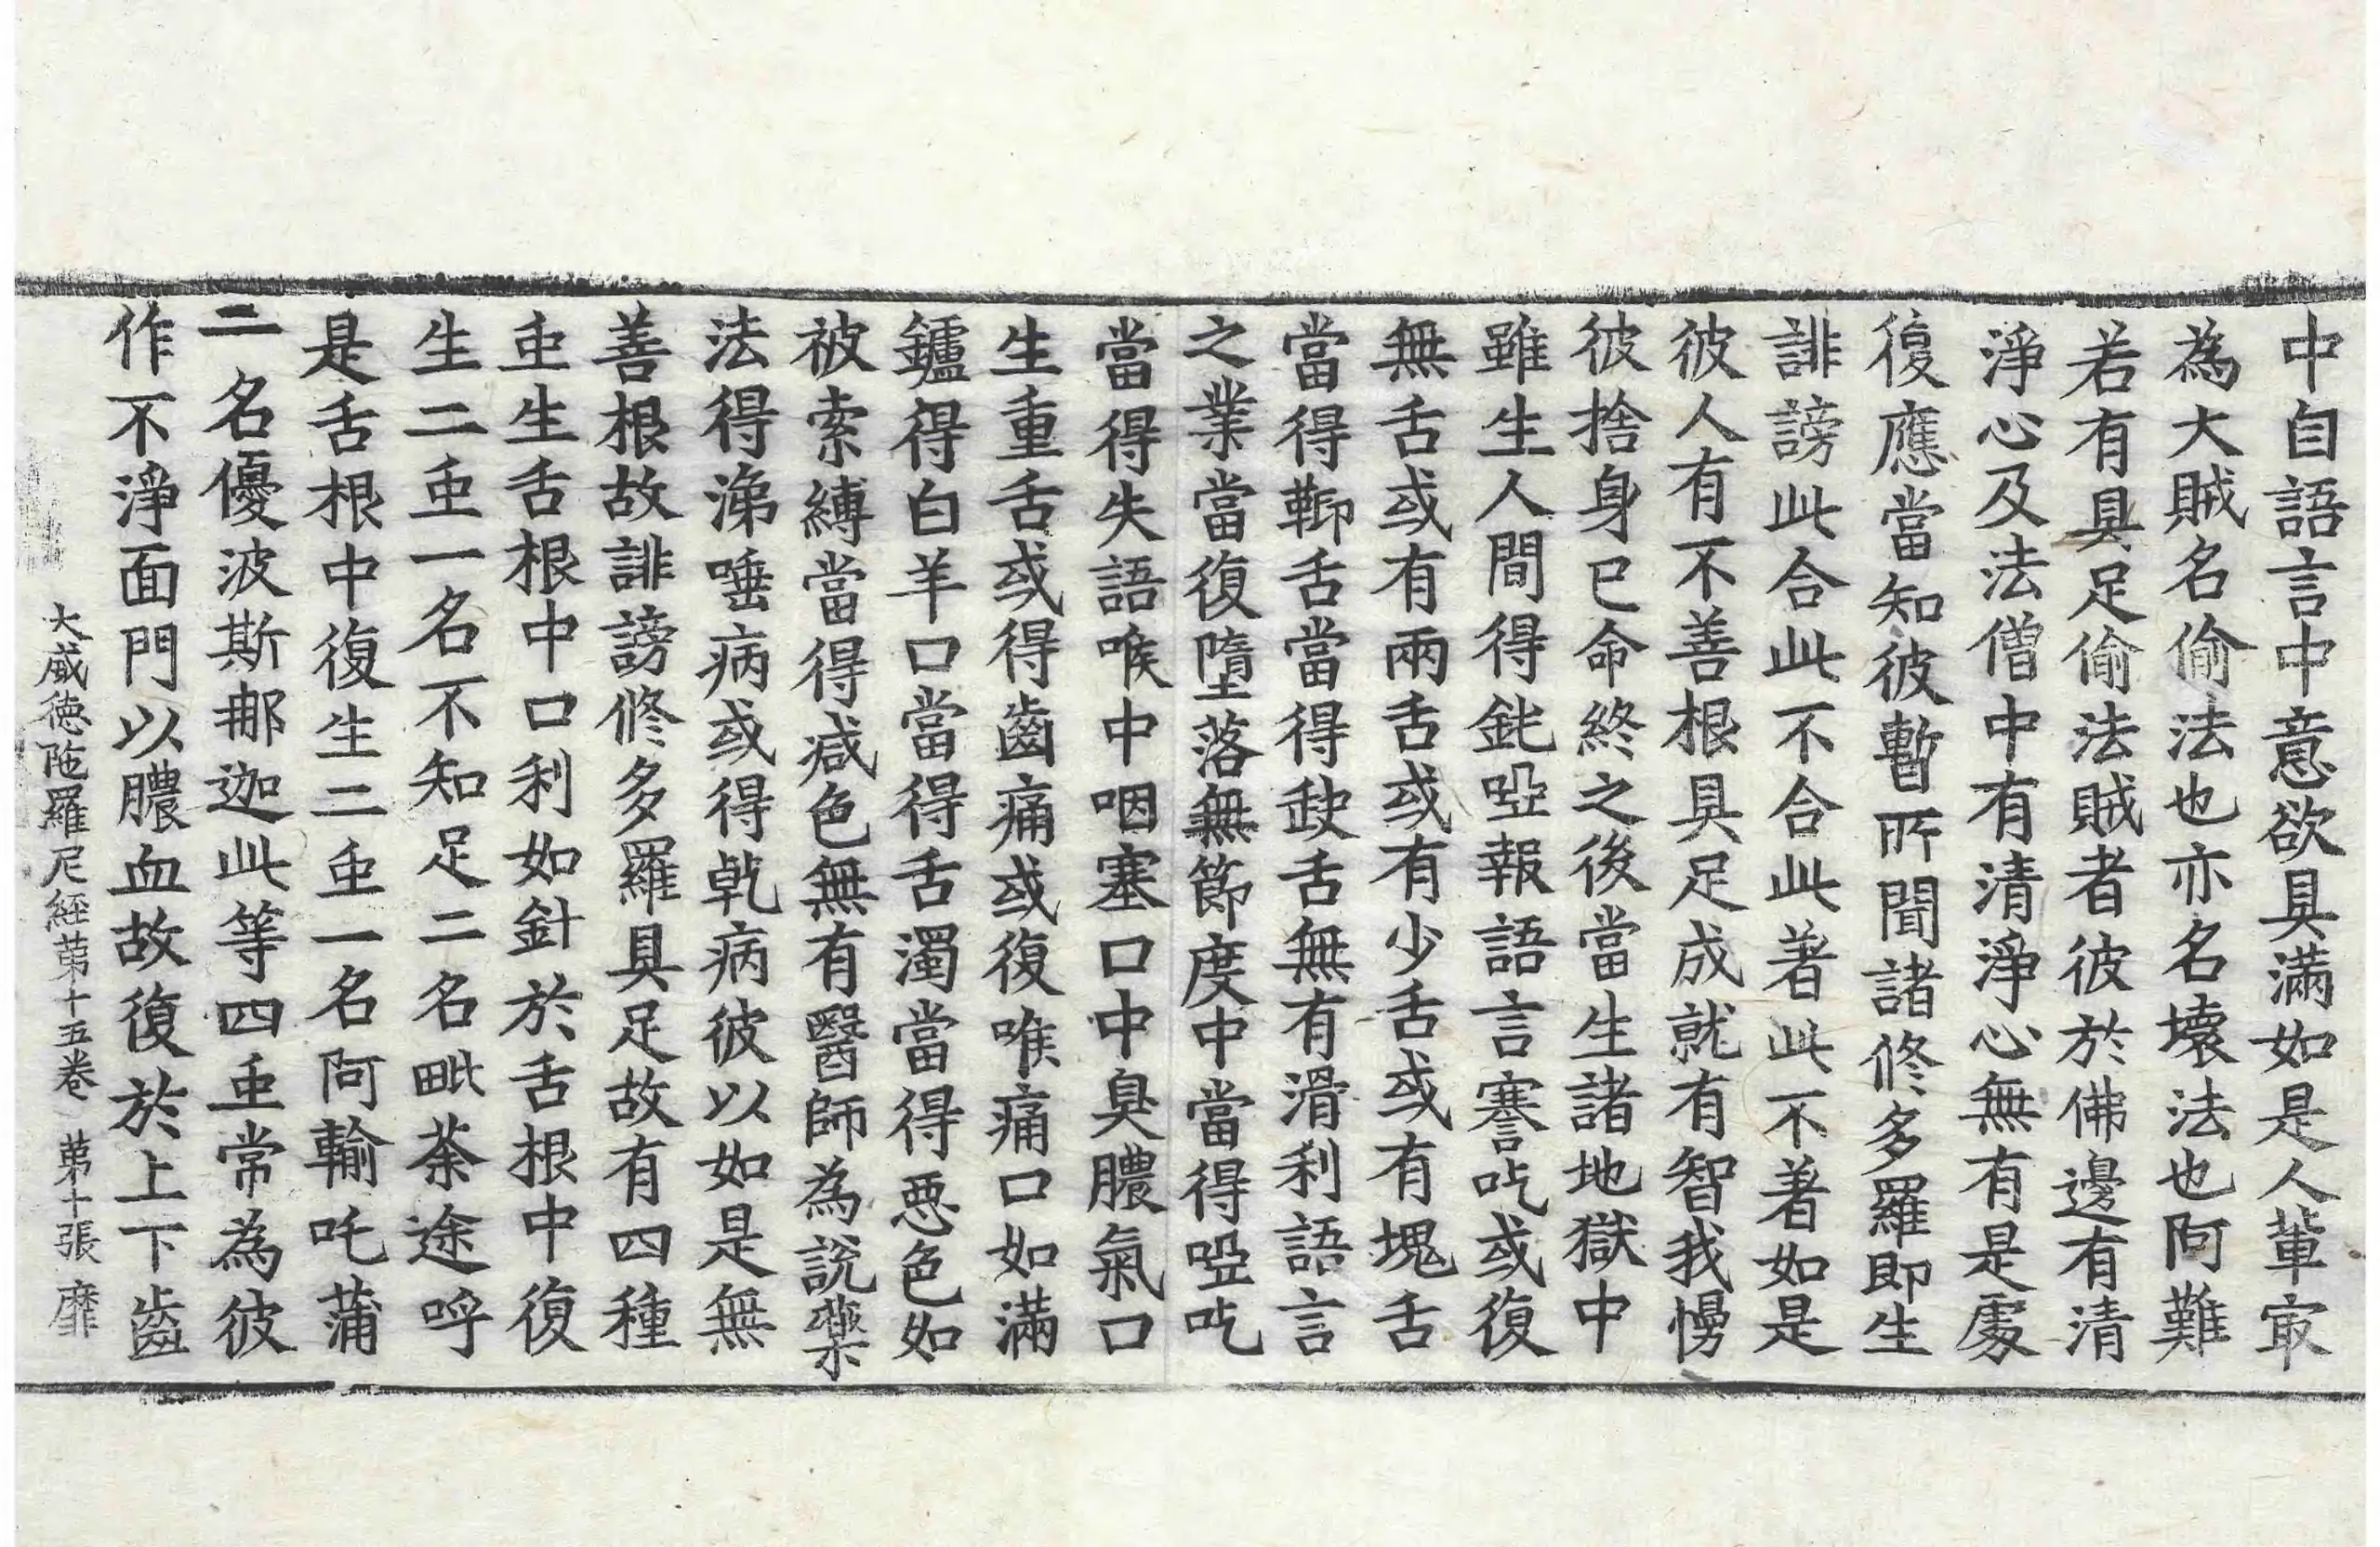 中自語言中意欲具滿如是人輩㝡
為大賊名偷法也亦名壞法也阿難
若有具足偷法賊者彼於佛邊有清
淨心及法僧中有清淨心無有是處
復應當知彼暫所聞諸修多羅即生
誹謗此合此不合此著此不著如是
彼人有不善根具足成就有智我慢
彼捨身已命終之後當生諸地獄中
雖生人間得鈍瘂報語言謇吃或復
無舌或有兩舌或有少舌或有塊舌
當得鞕舌當得缺舌無有滑利語言
之業當復墮落無節度中當得瘂吃
當得失語喉中咽塞口中臭膿氣口
生重舌或得齒痛或復喉痛口如滿
鑪得白羊口當得舌濁當得惡色如
被索縛當得減色無有醫師為說藥
法得涕唾病或得乾病彼以如是無
善根故誹謗修多羅具足故有四種
䖝生舌根中口利如針於舌根中復
生二䖝一名不知足二名毗荼途呼
是舌根中復生二䖝一名阿輸吒蒲
二名優波斯那迦此等四䖝常為彼
作不淨面門以膿血故復於上下齒
大威德陁羅尼經第十五卷 第十張 靡